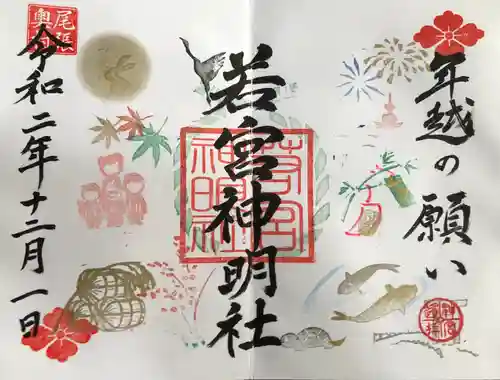 年越の願い
若宮神明社
令和二年十二月一日
尾張
奥付
若宮
神明社